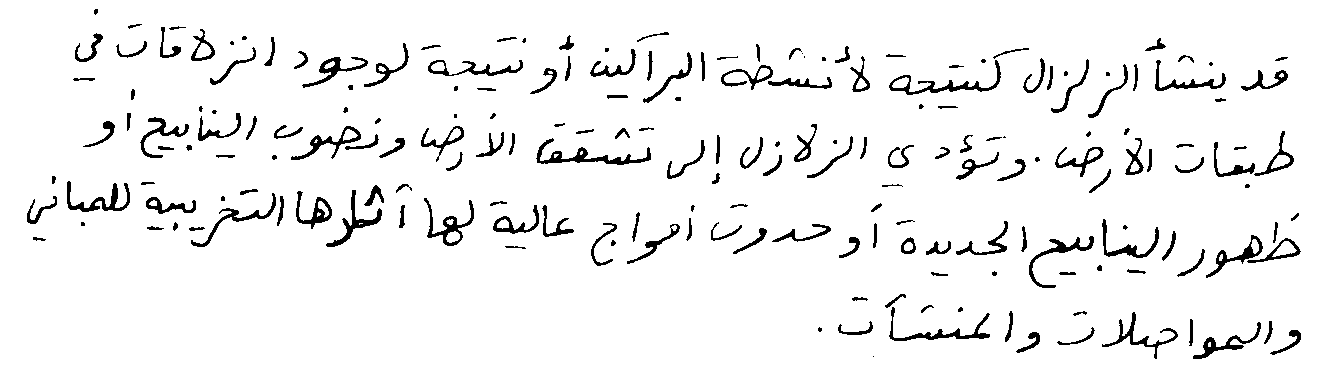 قد ينشأ الزلزال كنتيجة لأنشطة البراكين أو نتيجة لوجود انزلاقات في
طبقات الأرض. وتؤدي الزلازل إلى تشقق الأرض ونضوب الينابيع أو
ظهور الينابيع الجديدة أو حدوث أمواج عالية لها آثارها التخريبية للمباني
والمواصلات والمنشآت.